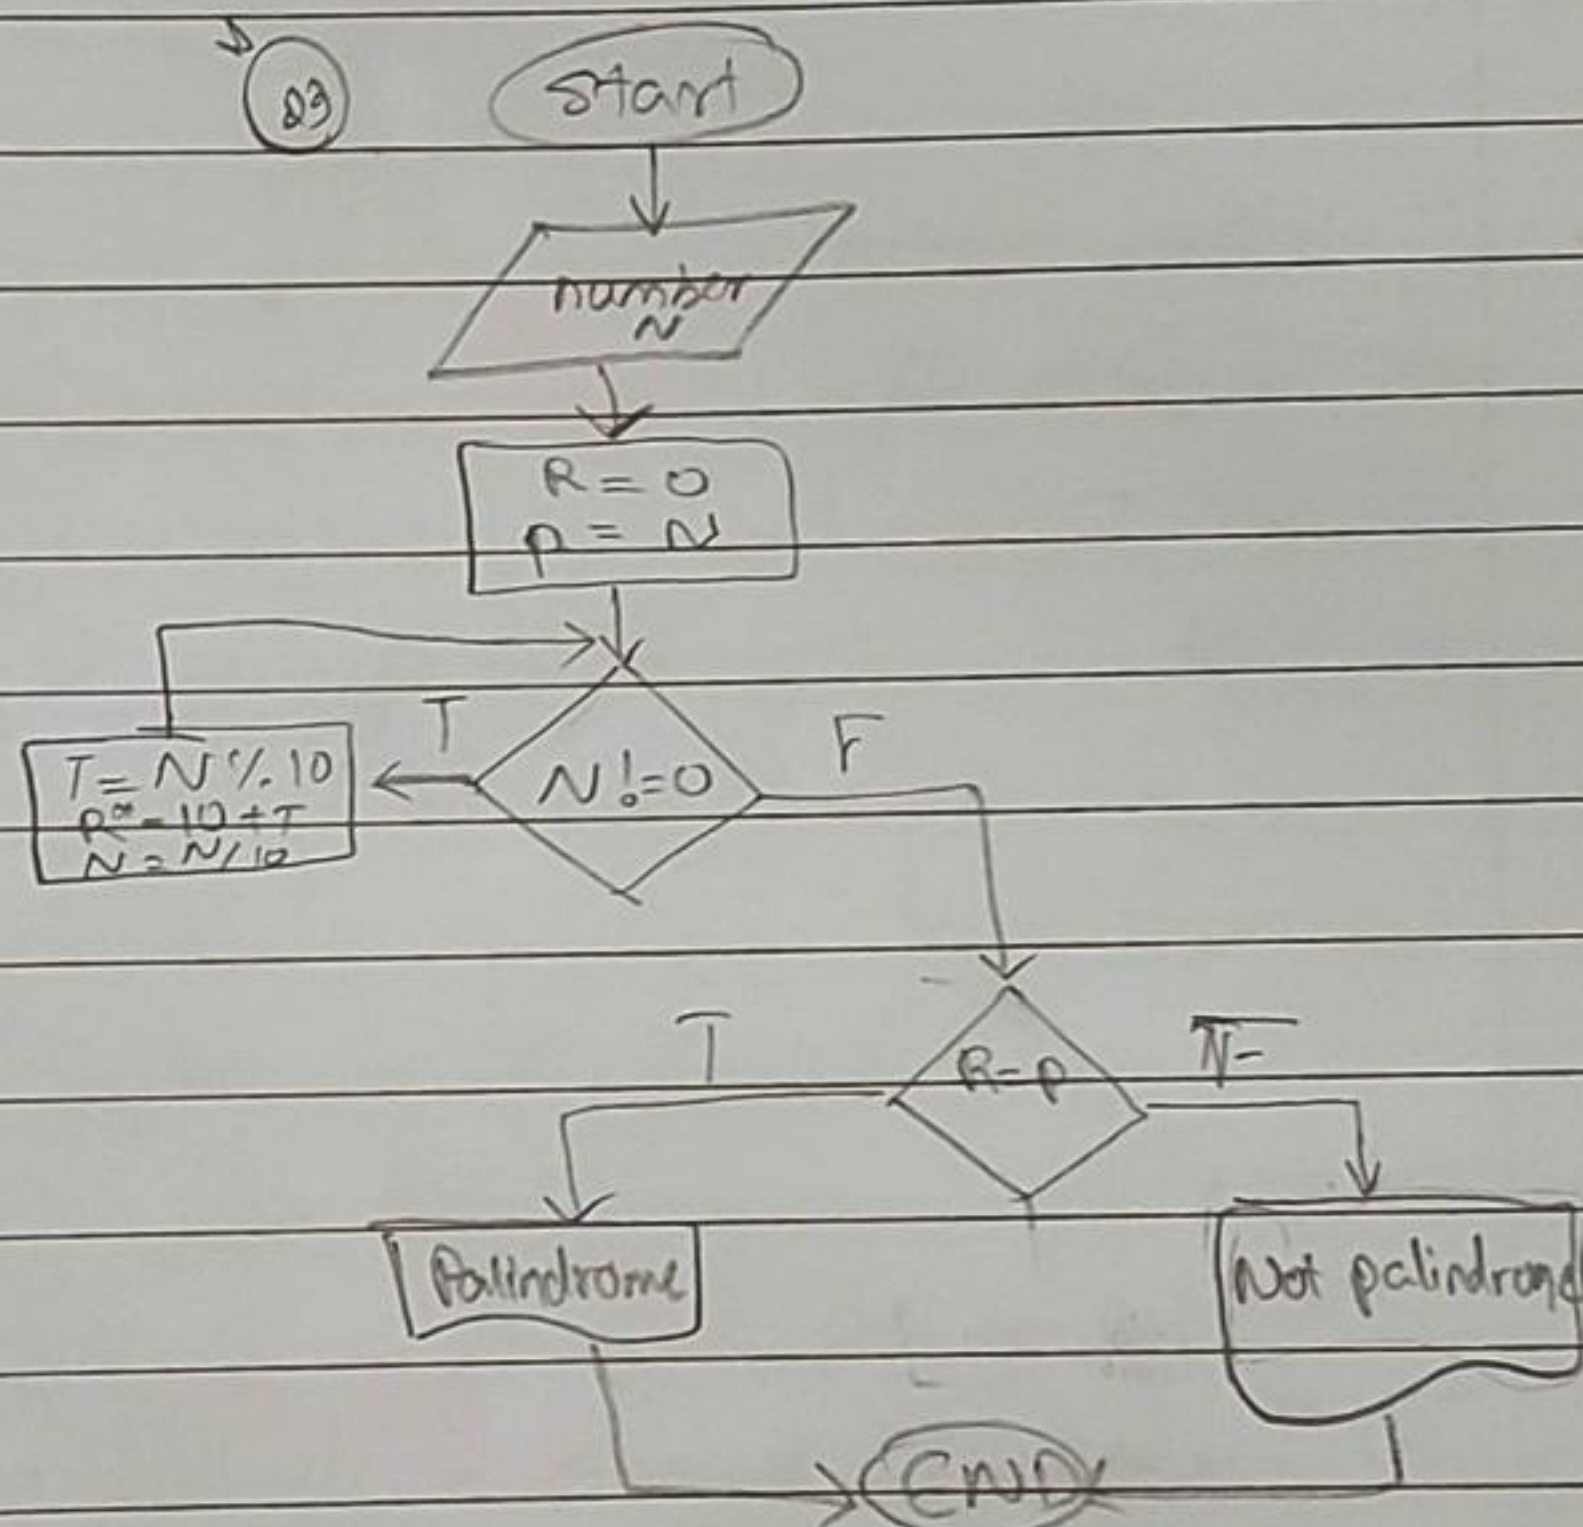 Q3
Start
number
N
R = 0
P = N
N != 0
T
F
T = N % 10
R* = 10 + T
N = N / 10
R = P
T
Palindrome
Not palindrome
END